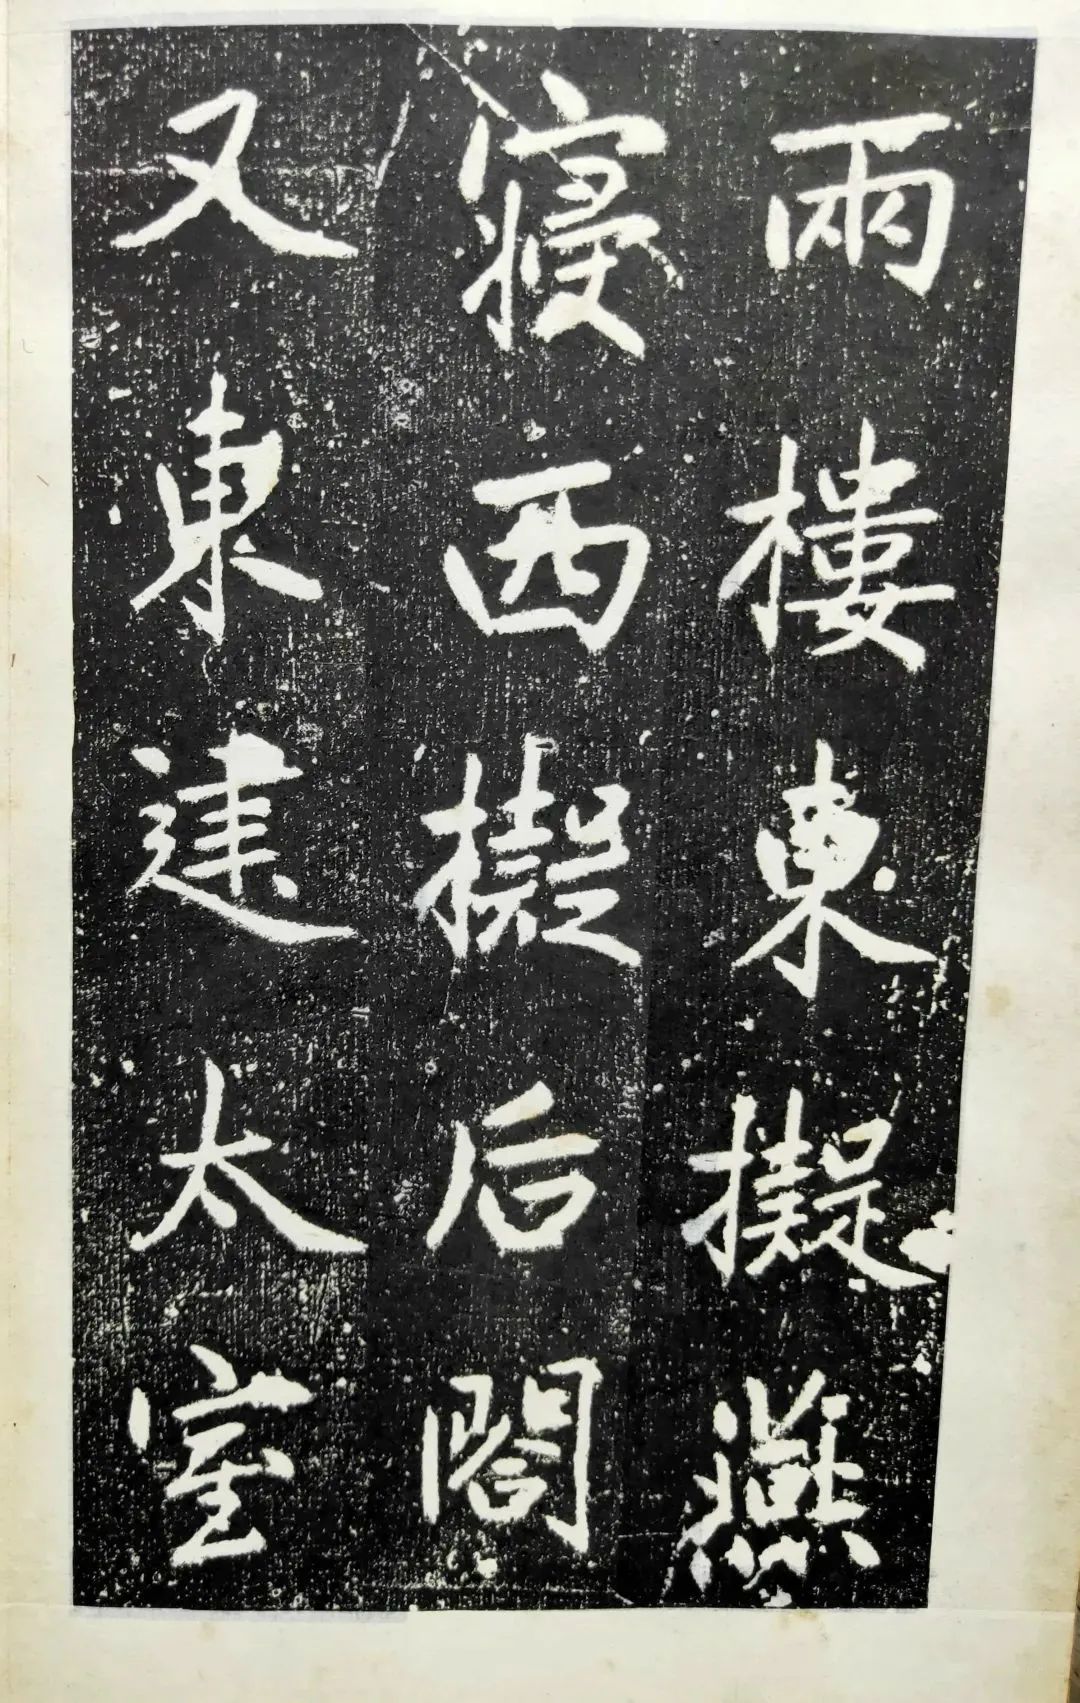 兩樓東擬燕
寢西擬后閤
又東建太室